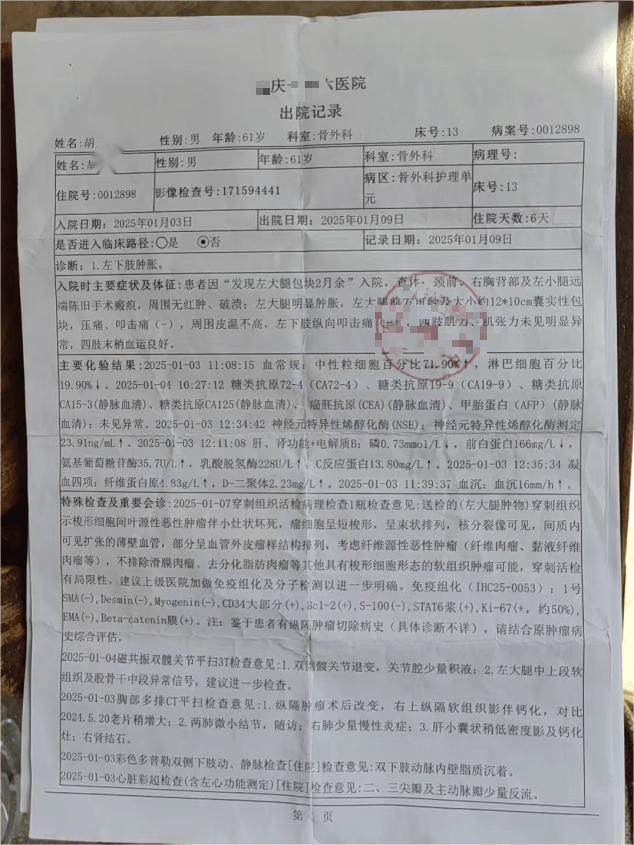 庆 医院
出院记录
姓名:胡 性别:男 年龄:61岁 科室:骨外科 床号:13 病案号:0012898
姓名: 性别:男 年龄:61岁 科室:骨外科 病理号:
住院号:0012898 影像检查号:171594441 病区:骨外科护理单元 床号:13
入院日期:2025年01月03日 出院日期:2025年01月09日 住院天数:6天
是否进入临床路径:○是 ◉否 记录日期:2025年01月09日
诊断:1.左下肢肿胀。
入院时主要症状及体征:患者因“发现左大腿包块2月余”入院。查体:颈前、右胸背部及左小腿远
端陈旧手术瘢痕,周围无红肿、破溃;左大腿明显肿胀,左大腿 及大小约12*10cm囊实性包
块,压痛、叩击痛(-),周围皮温不高,左下肢纵向叩击痛 四肢肌力、肌张力未见明显异
常,四肢末梢血运良好。
主要化验结果:2025-01-03 11:08:15 血常规:中性粒细胞百分比71.90%↑,淋巴细胞百分比
19.90%↓。2025-01-04 10:27:12 糖类抗原72-4(CA72-4)、糖类抗原19-9(CA19-9)、糖类抗原
CA15-3(静脉血清)、糖类抗原CA125(静脉血清)、癌胚抗原(CEA)(静脉血清)、甲胎蛋白(AFP)(静脉
血清):未见异常。2025-01-03 12:34:42 神经元特异性烯醇化酶(NSE):神经元特异性烯醇化酶测定
23.91ng/mL↑。2025-01-03 12:11:08 肝、肾功能+电解质B:磷0.73mmol/L↓,前白蛋白166mg/L↓,
氨基葡萄糖苷酶35.7U/L↑,乳酸脱氢酶228U/L↑,C反应蛋白13.80mg/L↑。2025-01-03 12:35:34 凝
血四项:纤维蛋白原4.83g/L↑,D-二聚体2.23mg/L↑。2025-01-03 11:39:37 血沉:血沉16mm/h↑。
特殊检查及重要会诊:2025-01-07穿刺组织活检病理检查1瓶检查意见:送检的(左大腿肿物)穿刺组织
示梭形细胞间叶源性恶性肿瘤伴小灶状坏死,瘤细胞呈短梭形,呈束状排列,核分裂像可见,间质内
可见扩张的薄壁血管,部分呈血管外皮瘤样结构排列,考虑纤维源性恶性肿瘤(纤维肉瘤、黏液纤维
肉瘤等),不排除滑膜肉瘤、去分化脂肪肉瘤等其他具有梭形细胞形态的软组织肿瘤可能,穿刺活检
有局限性,建议上级医院加做免疫组化及分子检测以进一步明确。免疫组化(IHC25-0053):1号
SMA(-),Desmin(-),Myogenin(-),CD34大部分(+),Bcl-2(+),S-100(-),STAT6浆(+),Ki-67(+,约50%),
EMA(-),Beta-catenin膜(+)。注:鉴于患者有纵隔肿瘤切除病史(具体诊断不详),请结合原肿瘤病
史综合评估。
2025-01-04磁共振双髋关节平扫3T检查意见:1.双侧髋关节退变,关节腔少量积液;2.左大腿中上段软
组织及股骨干中段异常信号,建议进一步检查。
2025-01-03胸部多排CT平扫检查意见:1.纵隔肿瘤术后改变,右上纵隔软组织影伴钙化,对比
2024.5.20老片稍增大;2.两肺微小结节,随访;右肺少量慢性炎症;3.肝小囊状稍低密度影及钙化
灶;右肾结石。
2025-01-03彩色多普勒双侧下肢动、静脉检查[住院]检查意见:双下肢动脉内壁脂质沉着。
2025-01-03心脏彩超检查(含左心功能测定)[住院]检查意见:二、三尖瓣及主动脉瓣少量反流。
第 页